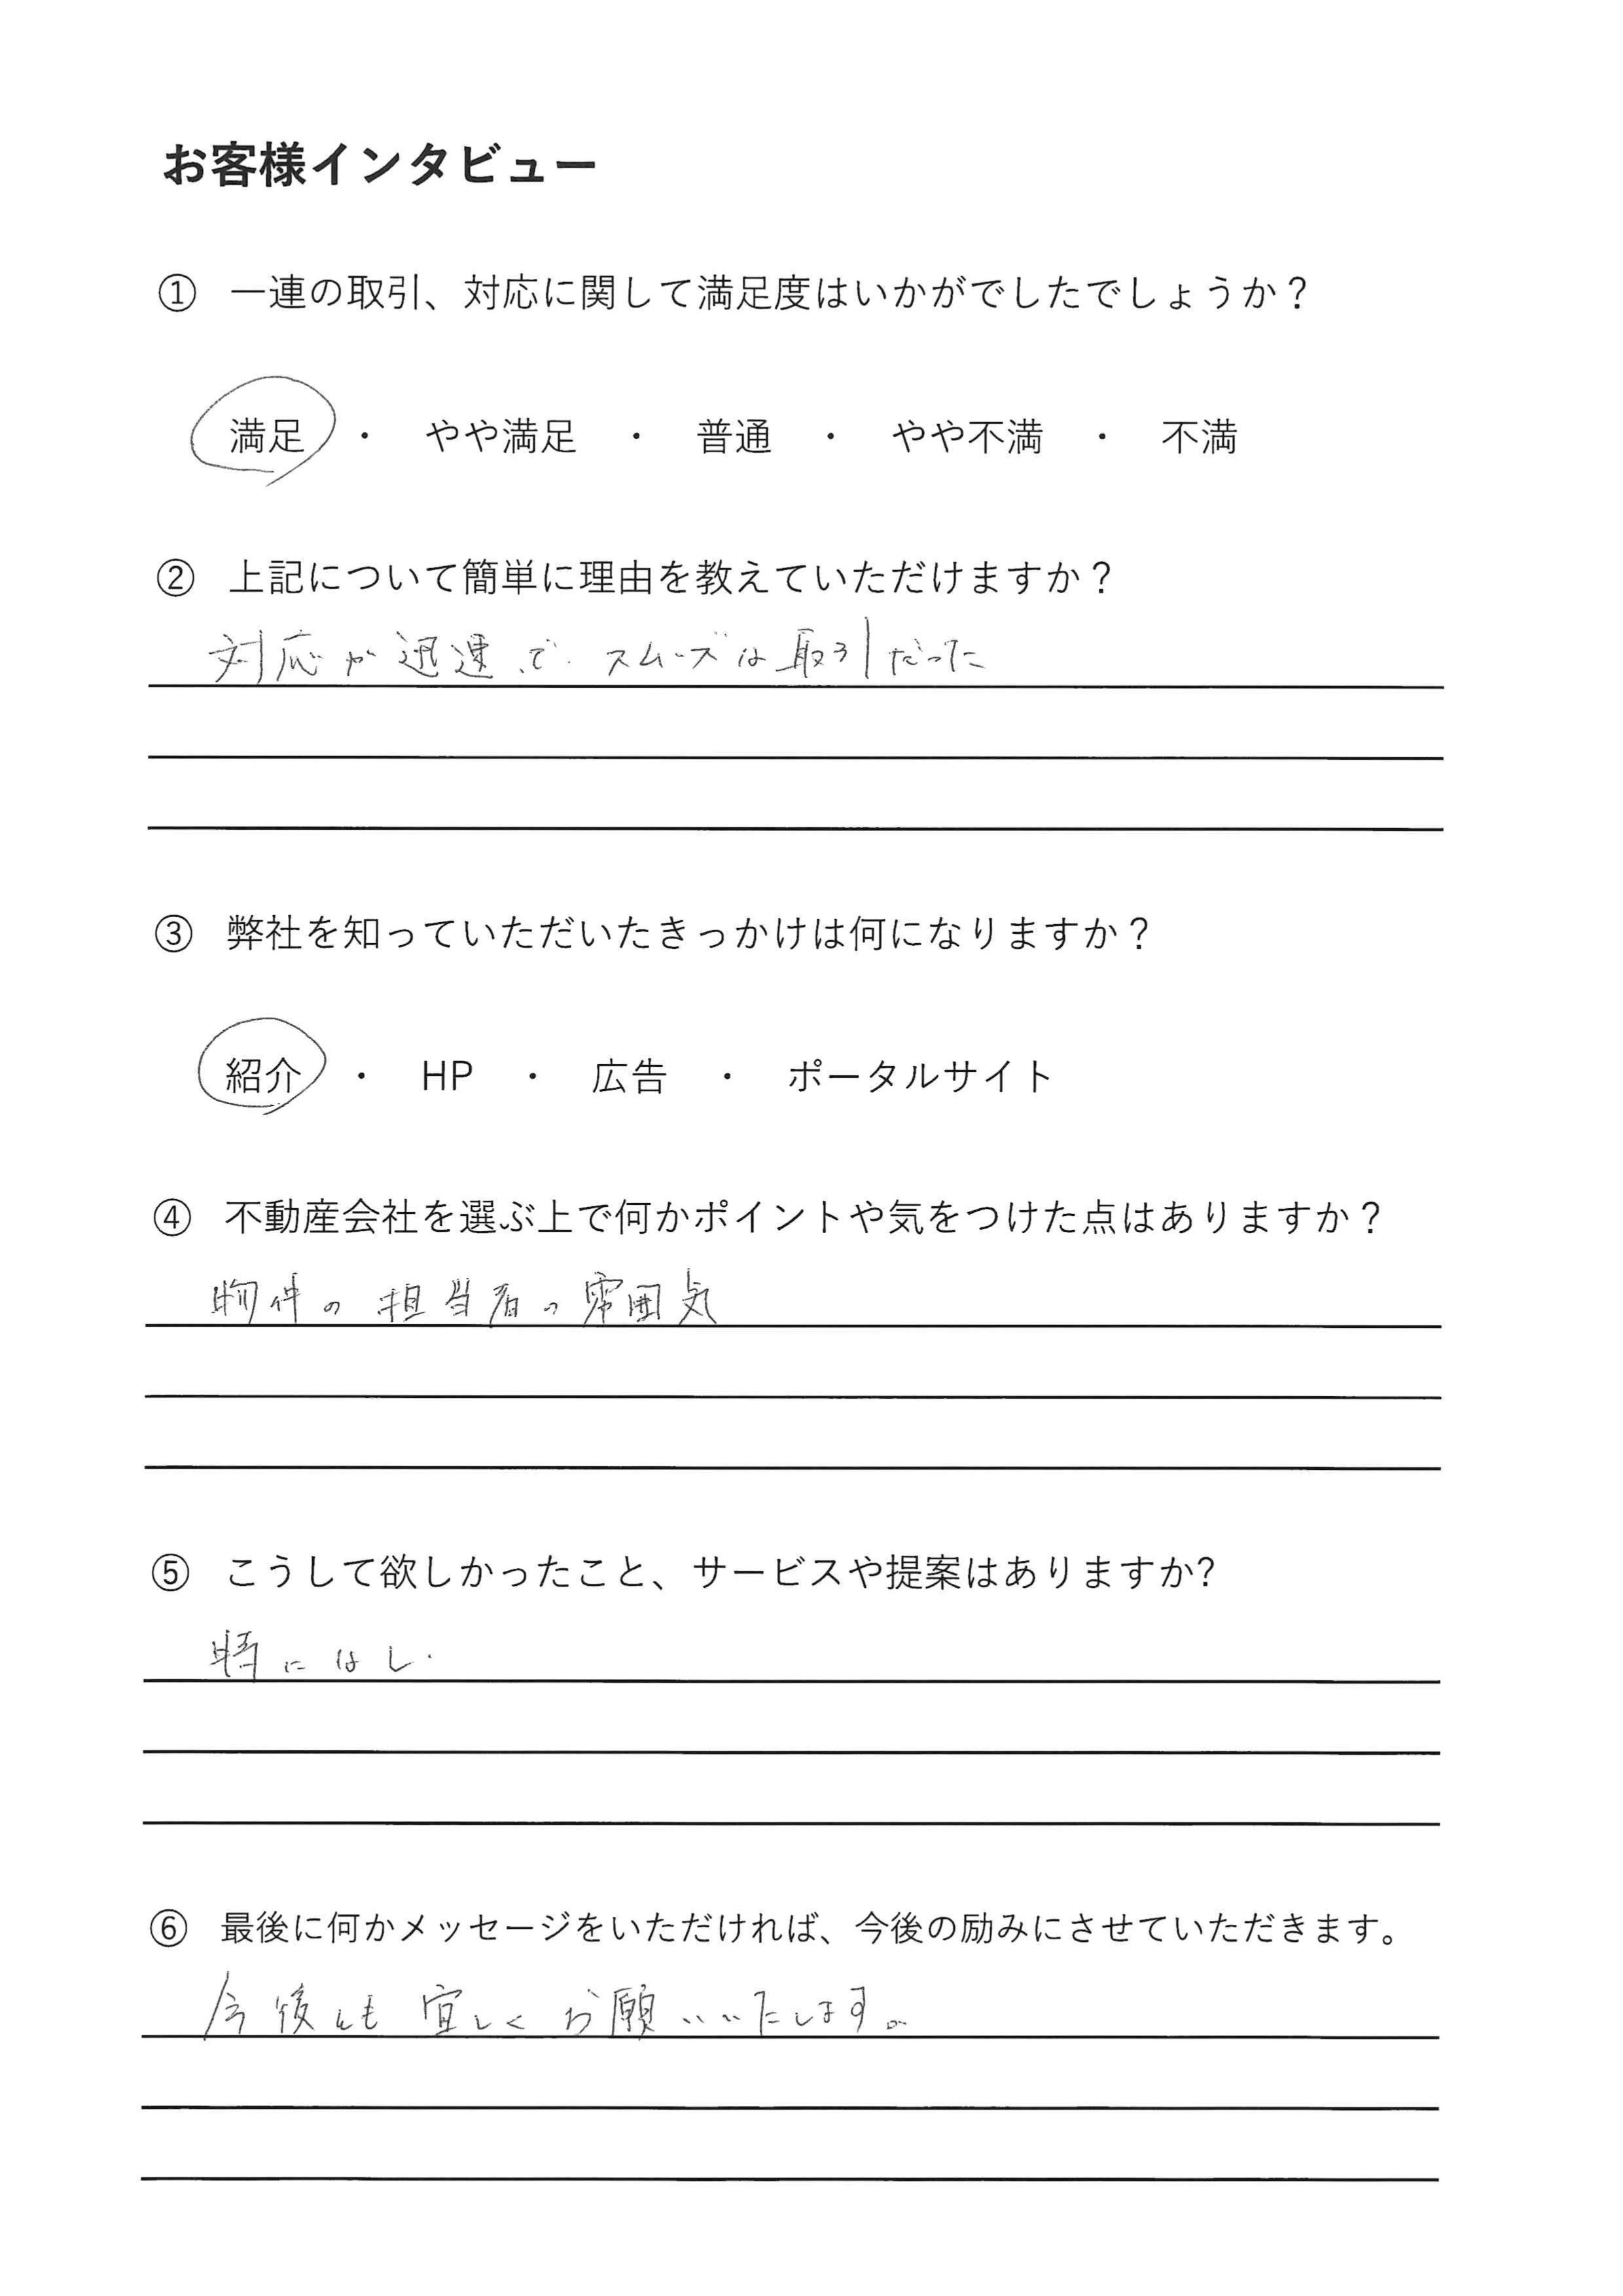 お客様インタビュー
① 一連の取引、対応に関して満足度はいかがでしたでしょうか？
満足 ・ やや満足 ・ 普通 ・ やや不満 ・ 不満
② 上記について簡単に理由を教えていただけますか？
対応が迅速で、スムーズな取引だった
③ 弊社を知っていただいたきっかけは何になりますか？
紹介 ・ HP ・ 広告 ・ ポータルサイト
④ 不動産会社を選ぶ上で何かポイントや気をつけた点はありますか？
物件の担当者の雰囲気
⑤ こうして欲しかったこと、サービスや提案はありますか?
特になし.
⑥ 最後に何かメッセージをいただければ、今後の励みにさせていただきます。
今後とも宜しくお願いいたします。